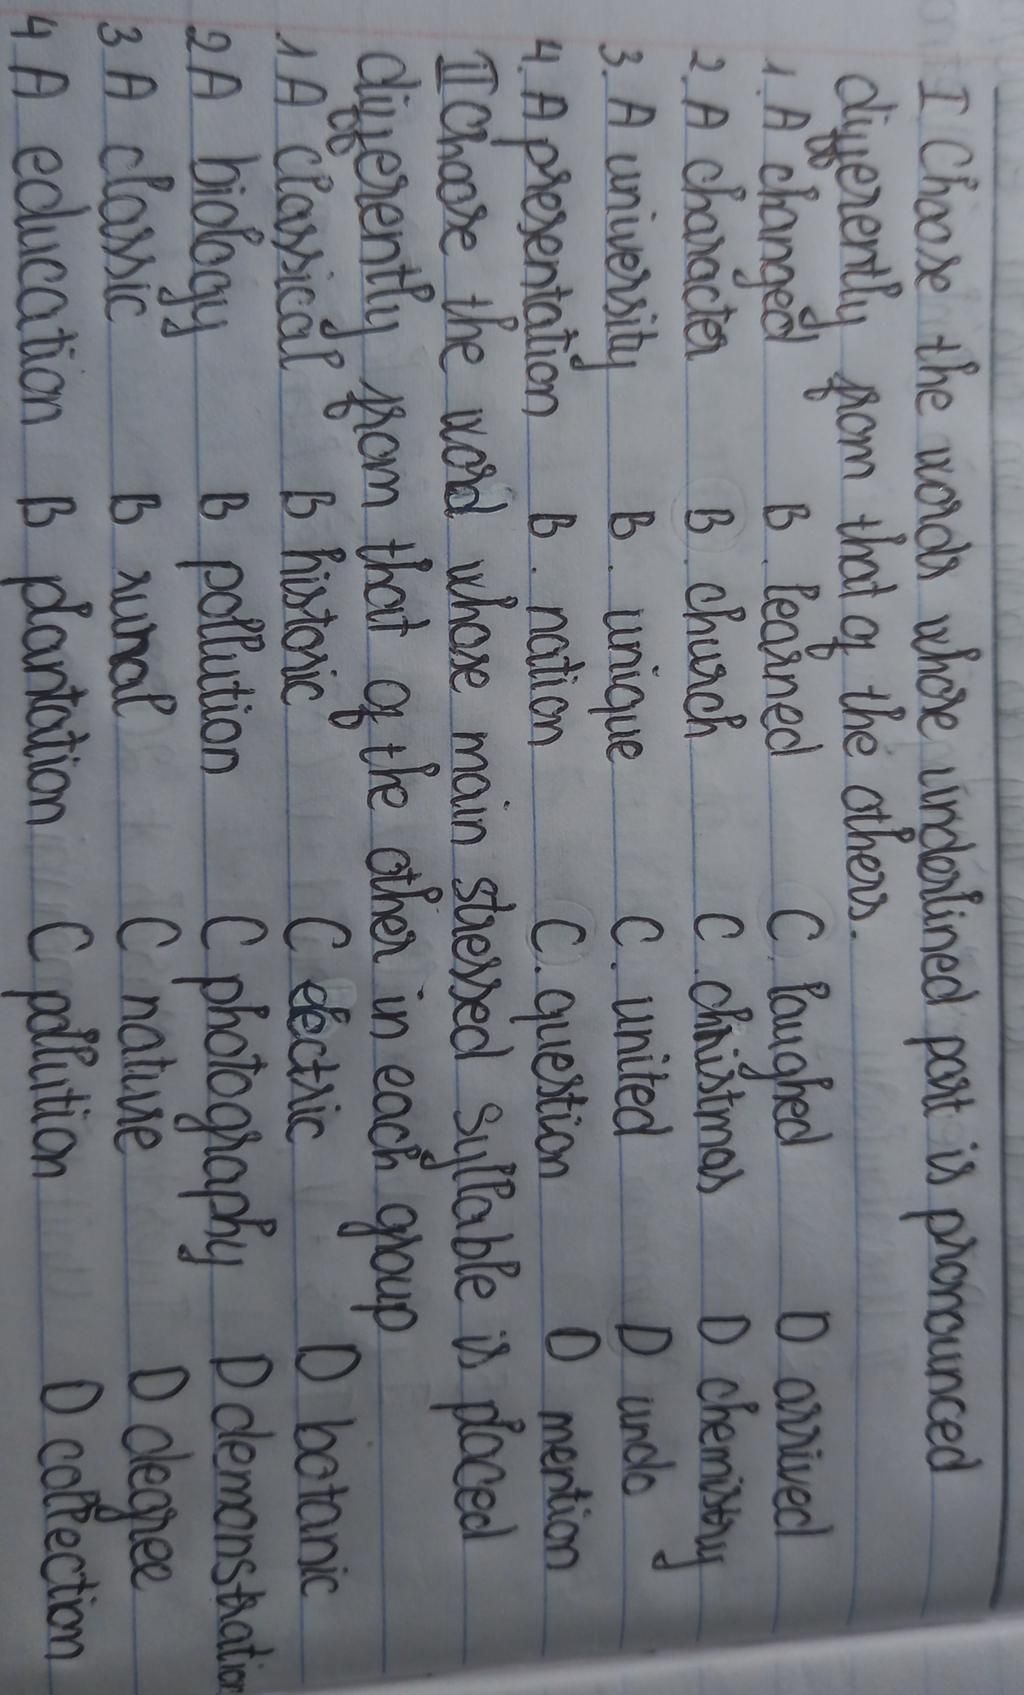 I Choose the words whose underlined part is pronounced
differently from that of the others.
1. A changed B. learned C. laughed D arrived
2. A character B. church C. christmas D chemistry
3. A university B. unique C. united D undo
4. A presentation B. nation C. question D mention
II Choose the word whose main stressed syllable is placed
differently from that of the other in each group
1 A classical B historic C electric D botanic
2 A biology B pollution C photography D demonstration
3 A classic B rural C nature D degree
4 A education B plantation C pollution D collection